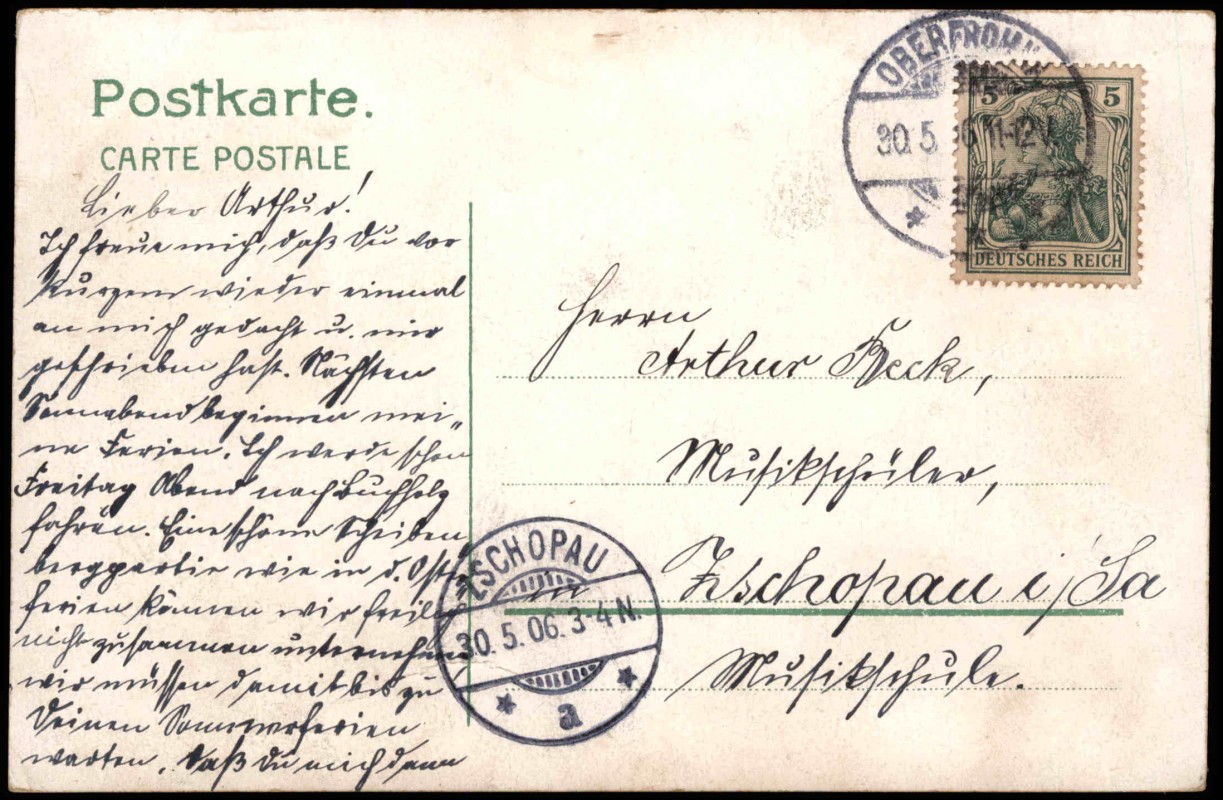 Postkarte.
CARTE POSTALE
Lieber Arthur!
Ich freue mich, daß Du vor
Kurzem wieder einmal
an mich gedacht u. mir
geschrieben hast. Nächsten
Sonnabend beginnen mei„
ne Ferien. Ich werde schon
Freitag Abend nach Buchholz
fahren. Eine schöne Scheiben
bergpartie wie in d. Oster
ferien können wir freilich
nicht zusammen unternehmen
wir müssen damit bis zu
Deinen Sommerferien
warten. Daß Du mich dann
OBERFROHNA
30.5.06 11-12V.
5 5
DEUTSCHES REICH
Herrn
Arthur Beck,
Musikschüler,
in Zschopau i/Sa
Musikschule.
ZSCHOPAU
30.5.06. 3-4 N.
a